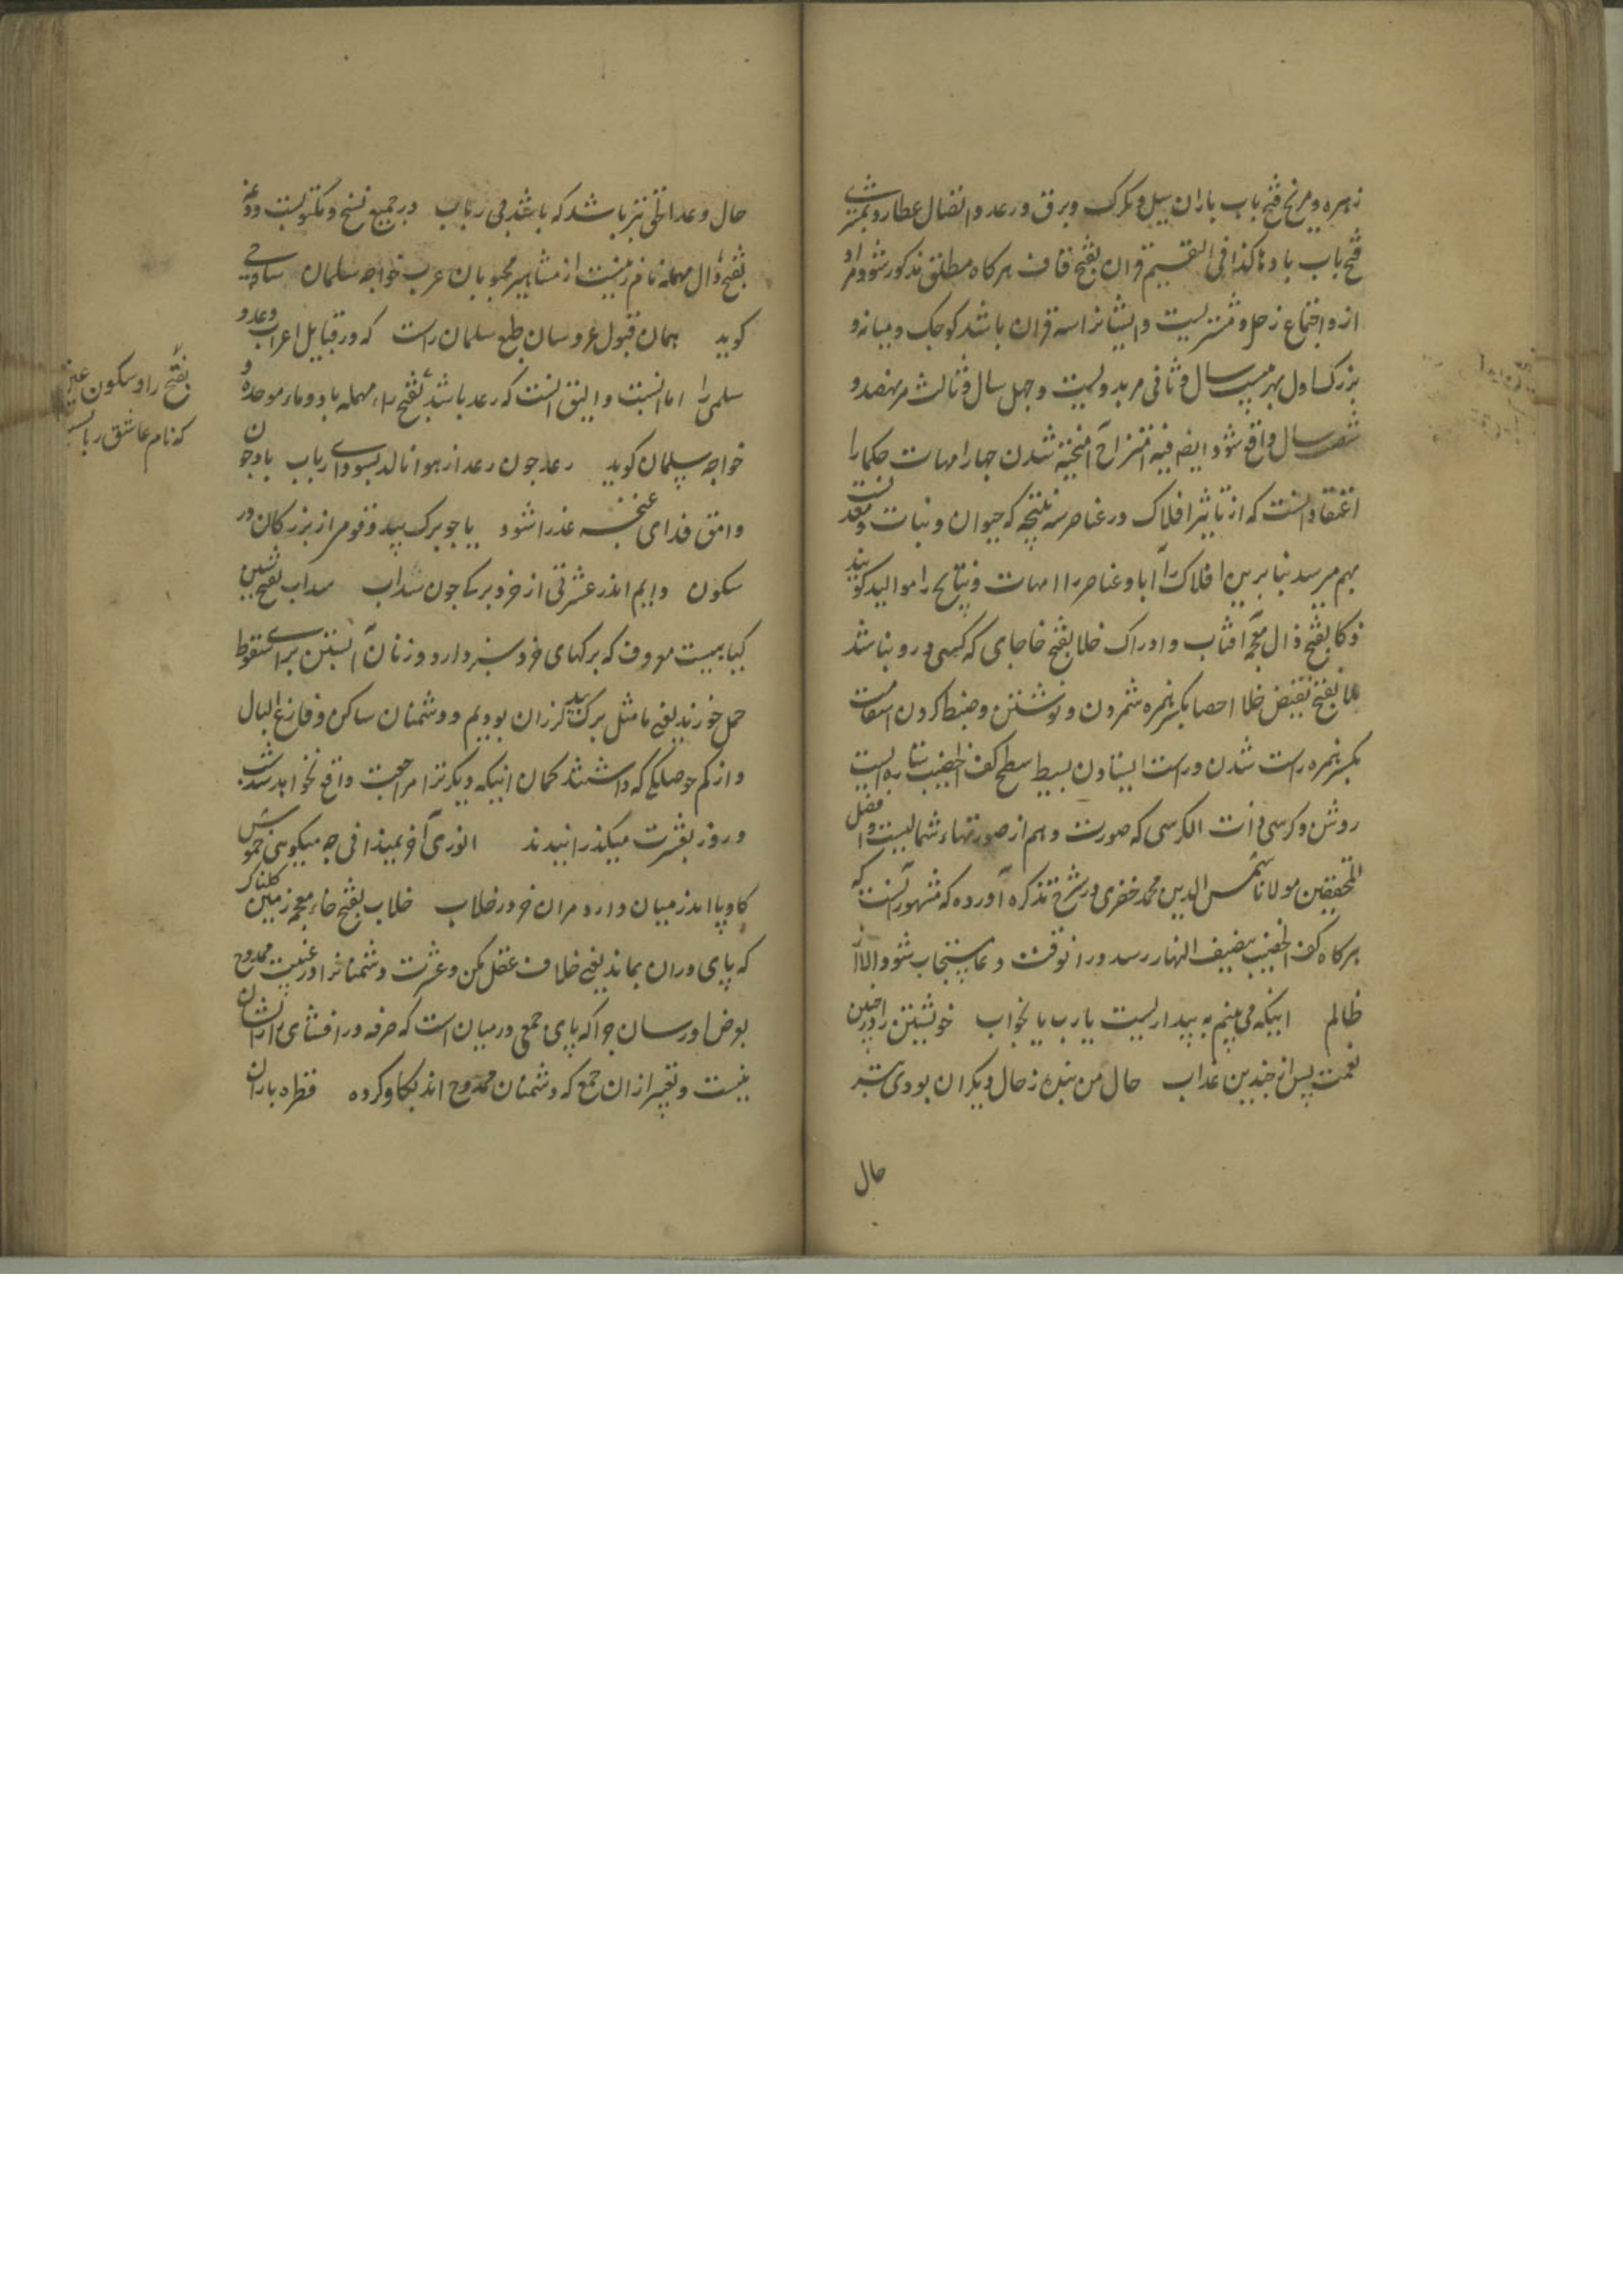 زهره و مریخ فتح باب باران سیل و تکرک و برق و رعد و اتصال عطارد و مشتری
فتح باب بادها کذا فی التقسیم قران بفتح قاف هرکاه مطلق مذکور شود مراد
ازو اجتماع زحل و مشتریست و ایشانرا سه قران باشد کوچک و میانه و
بزرک اول بهر بیست سال و ثانی هر بدویست و چهل سال و ثالث هر نهصد و
شصت سال واقع شود ایضا فیه امتزاج آمیخته شدن چهار امهات حکما را
اعتقاد آنست که از تاثیر افلاک در عناصر سه نتیجه که حیوان و نبات و معدنست
بهم میرسد بنابرین افلاک را آبا و عناصر را امهات و نتایج را موالید کویند
ذکا بفتح ذال معجمه آفتاب و ادراک خلا بفتح خا جای که کسی درو نباشد
ملا بفتح نقیض خلا احصا بکسر همزه شمردن و نوشتن و ضبط کردن استقامت
بکسر همزه راست شدن و راست ایستادن بسیط سطح کف الخضیب ستاره ایست
روشن و کرسی ذات الکرسی که صورت دهم از صورتهاء شمالیست و افضل
المحققین مولانا شمس الدین محمد خفری در شرح تذکره آورده که مشهور آنست که
هرکاه کف الخضیب بنصف النهار رسد در انوقت دعا مستجاب شود الا از
ظالم اینکه می بینم به بیداریست یا رب یا بخواب خویشتن را در چنین
نعمت پس از چندین عذاب حال من بنده ز حال دیکران بودی بتر
حال
حال وعد الحق نیز باشد که باشد بی رباب در جمیع نسخ مکتوبست و وعد
بفتح دال مهمله نام زنیست از مشاهیر محبوبان عرب خواجه سلمان ساوجی
کوید همان قبول عروسان طبع سلمان راست که در قبایل اعراب وعد و
سلمی را اما انسب و الیق آنست که رعد باشد بفتح راء مهمله با دو ماه موحده و
خواجه سلمان کوید رعد چون رعد از هوا نالد بسودای رباب باد چون
وامق فدای غنچه عذرا شود یا چو برک بید و قومی از بزرکان در
سکون دایم اندر عشرتی از خرد برکی چون سداب سداب بفتح سین
کیاهیست معروف که برکهای خرد سبز دارد و زنان آبستن برای سقوط
حمل خورند یعنی ما مثل برک بید لرزان بودیم و دشمنان ساکن و فارغ البال
و از کم حوصلکی که داشتند کمان اینکه دیکر ترا مراجعت واقع نخواهد شد شب
و روز بعشرت میکذرانیدند انوری آخر نمیدانی چه میکویی خموش
کاو پا اندر میان دارد مران خر در خلاب خلاب بفتح خاء معجمه زمین کلناک
که پای در ان بماند یعنی خلاف عقل مکن و عشرت دشمنانرا در غیبت ممدوح
بعرض او مرسان چرا که پای جمعی در میان است که صرفه در افشای راز ایشان
نیست و تعبیر از ان جمع که دشمنان ممدوح اند بکاو کرده قطره باران
بفتح را و سکون عین
که نام عاشق ربابست